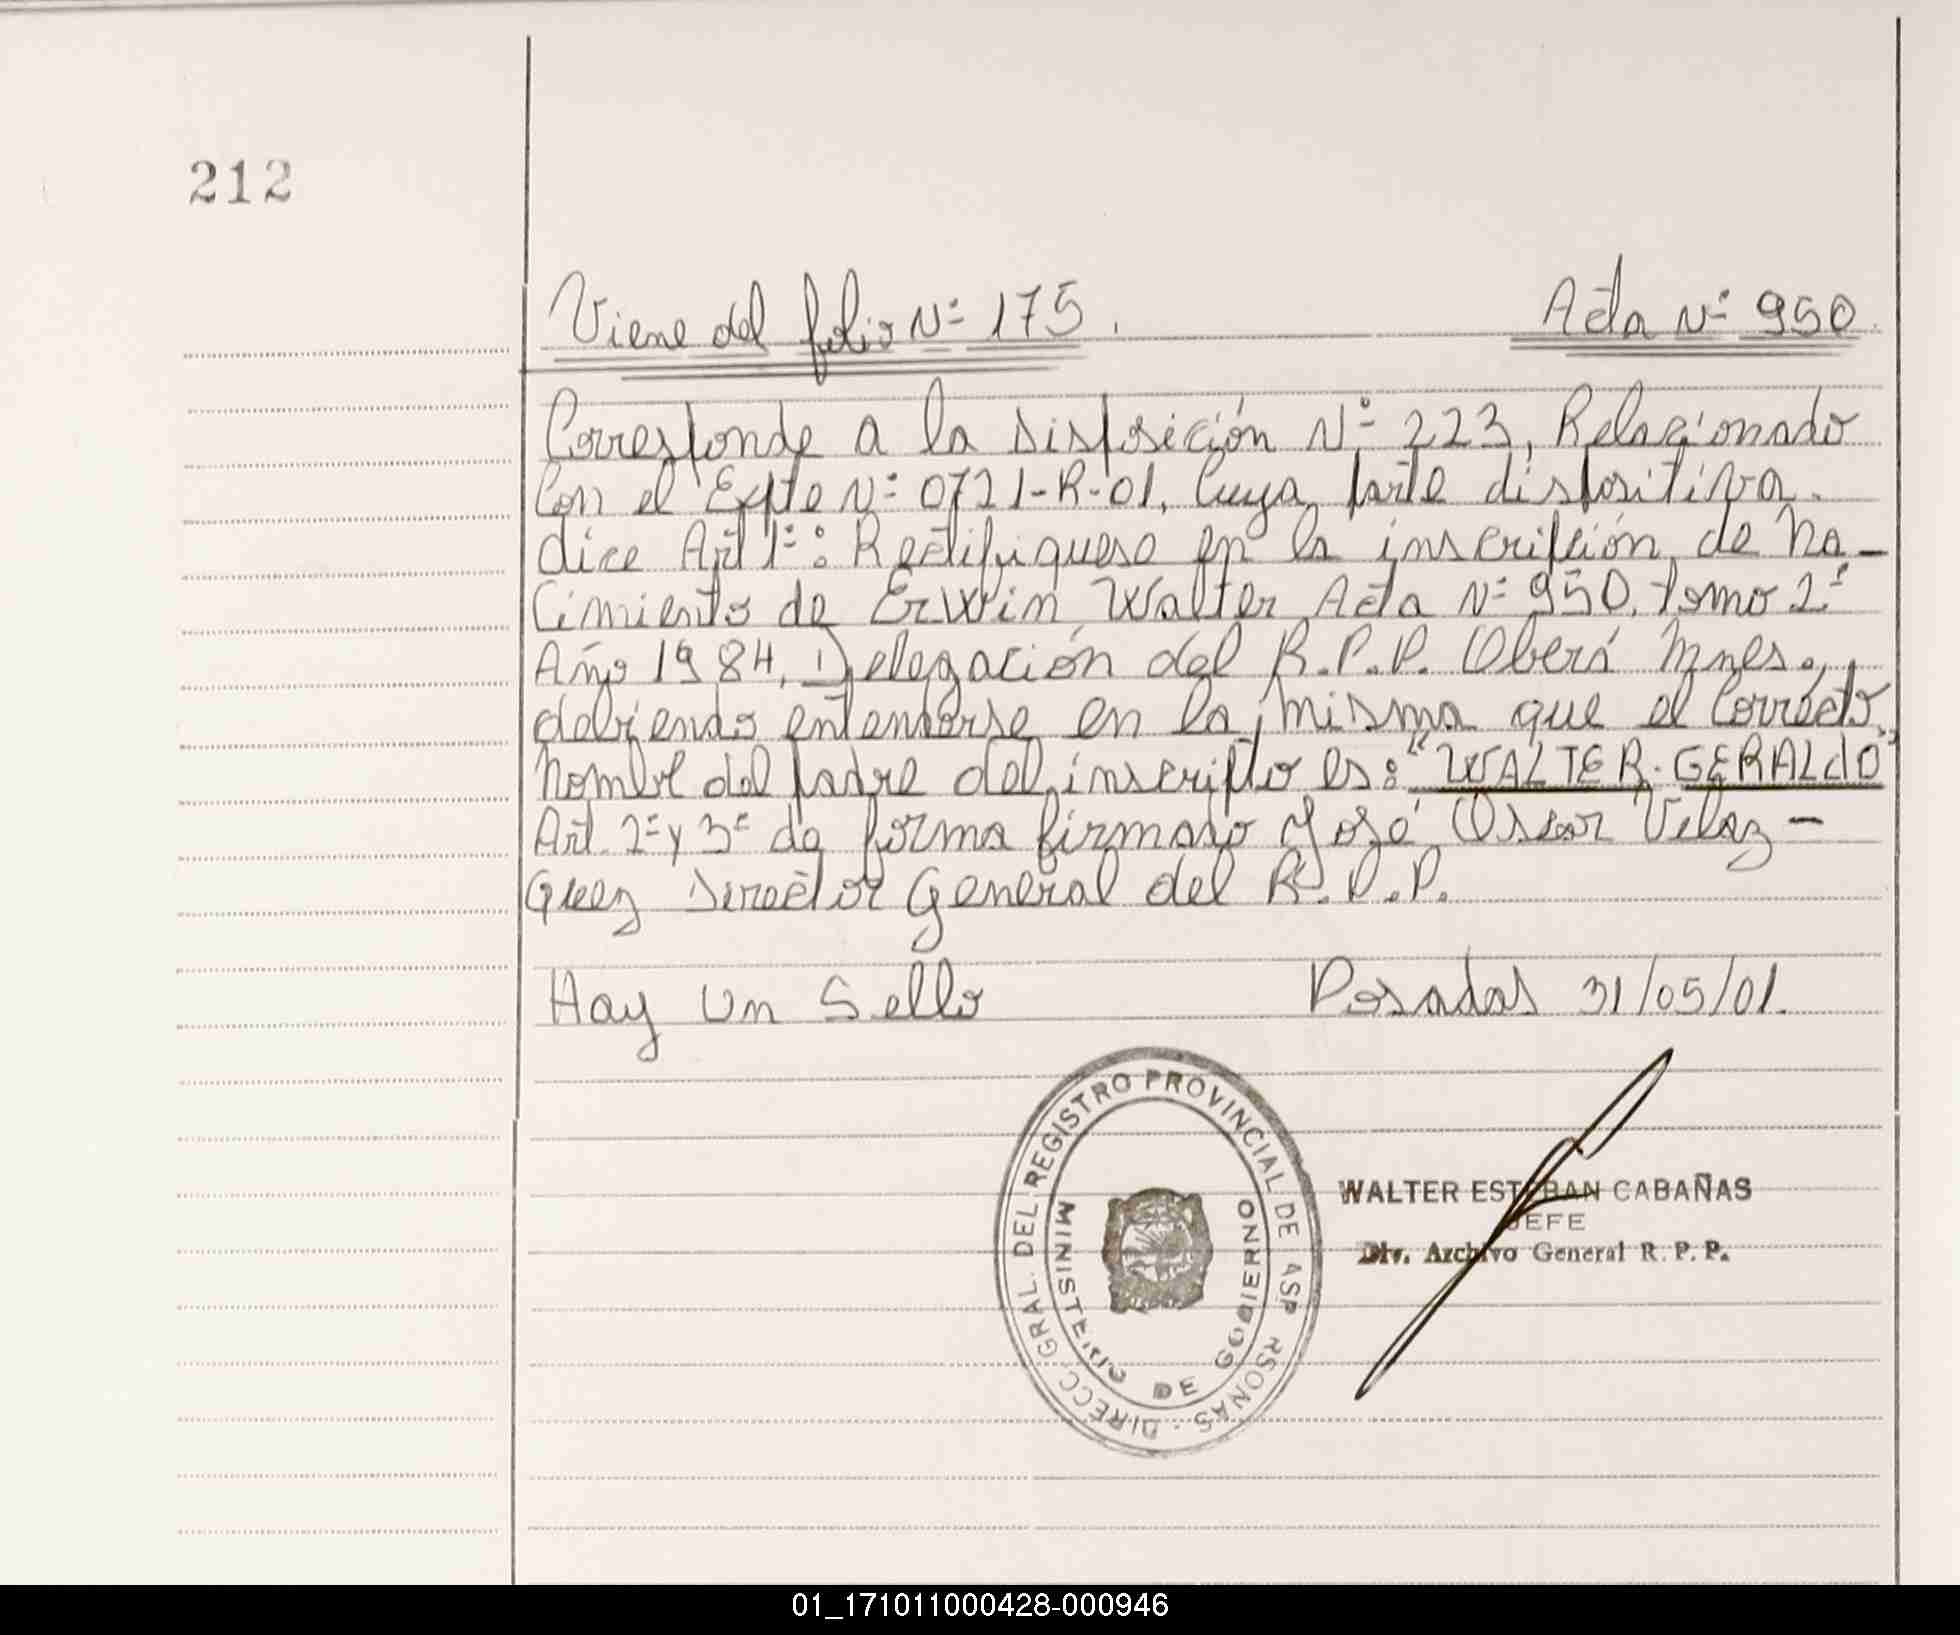 212
Viene del folio Nº 175. Acta Nº 950.
Corresponde a la Disposición Nº 223, Relacionado
Con el Expte Nº 0721-R-01, Cuya parte dispositiva.
dice Art 1º: Rectifiquese en la inscripción de Na-
cimiento de Erwin Walter Acta Nº 950. Tomo 2º
Año 1984, Delegación del R.P.P. Oberá Mnes.,
debiendo entenderse en la misma que el Correcto
Nombre del padre del inscripto es: "WALTER GERALdO"
Art. 2º y 3º de forma firmado José Oscar Velaz-
quez Director General del R.P.P.
Hay Un Sello Posadas 31/05/01.
DIRECC. GRAL. DEL REGISTRO PROVINCIAL DE LAS P RSONAS -
MINISTERIO DE GOBIERNO
WALTER ESTEBAN CABAÑAS
JEFE
Div. Archivo General R. P. P.
01_171011000428-000946